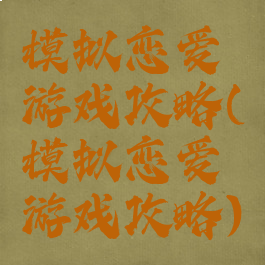 模拟恋爱
游戏攻略(
模拟恋爱
游戏攻略)